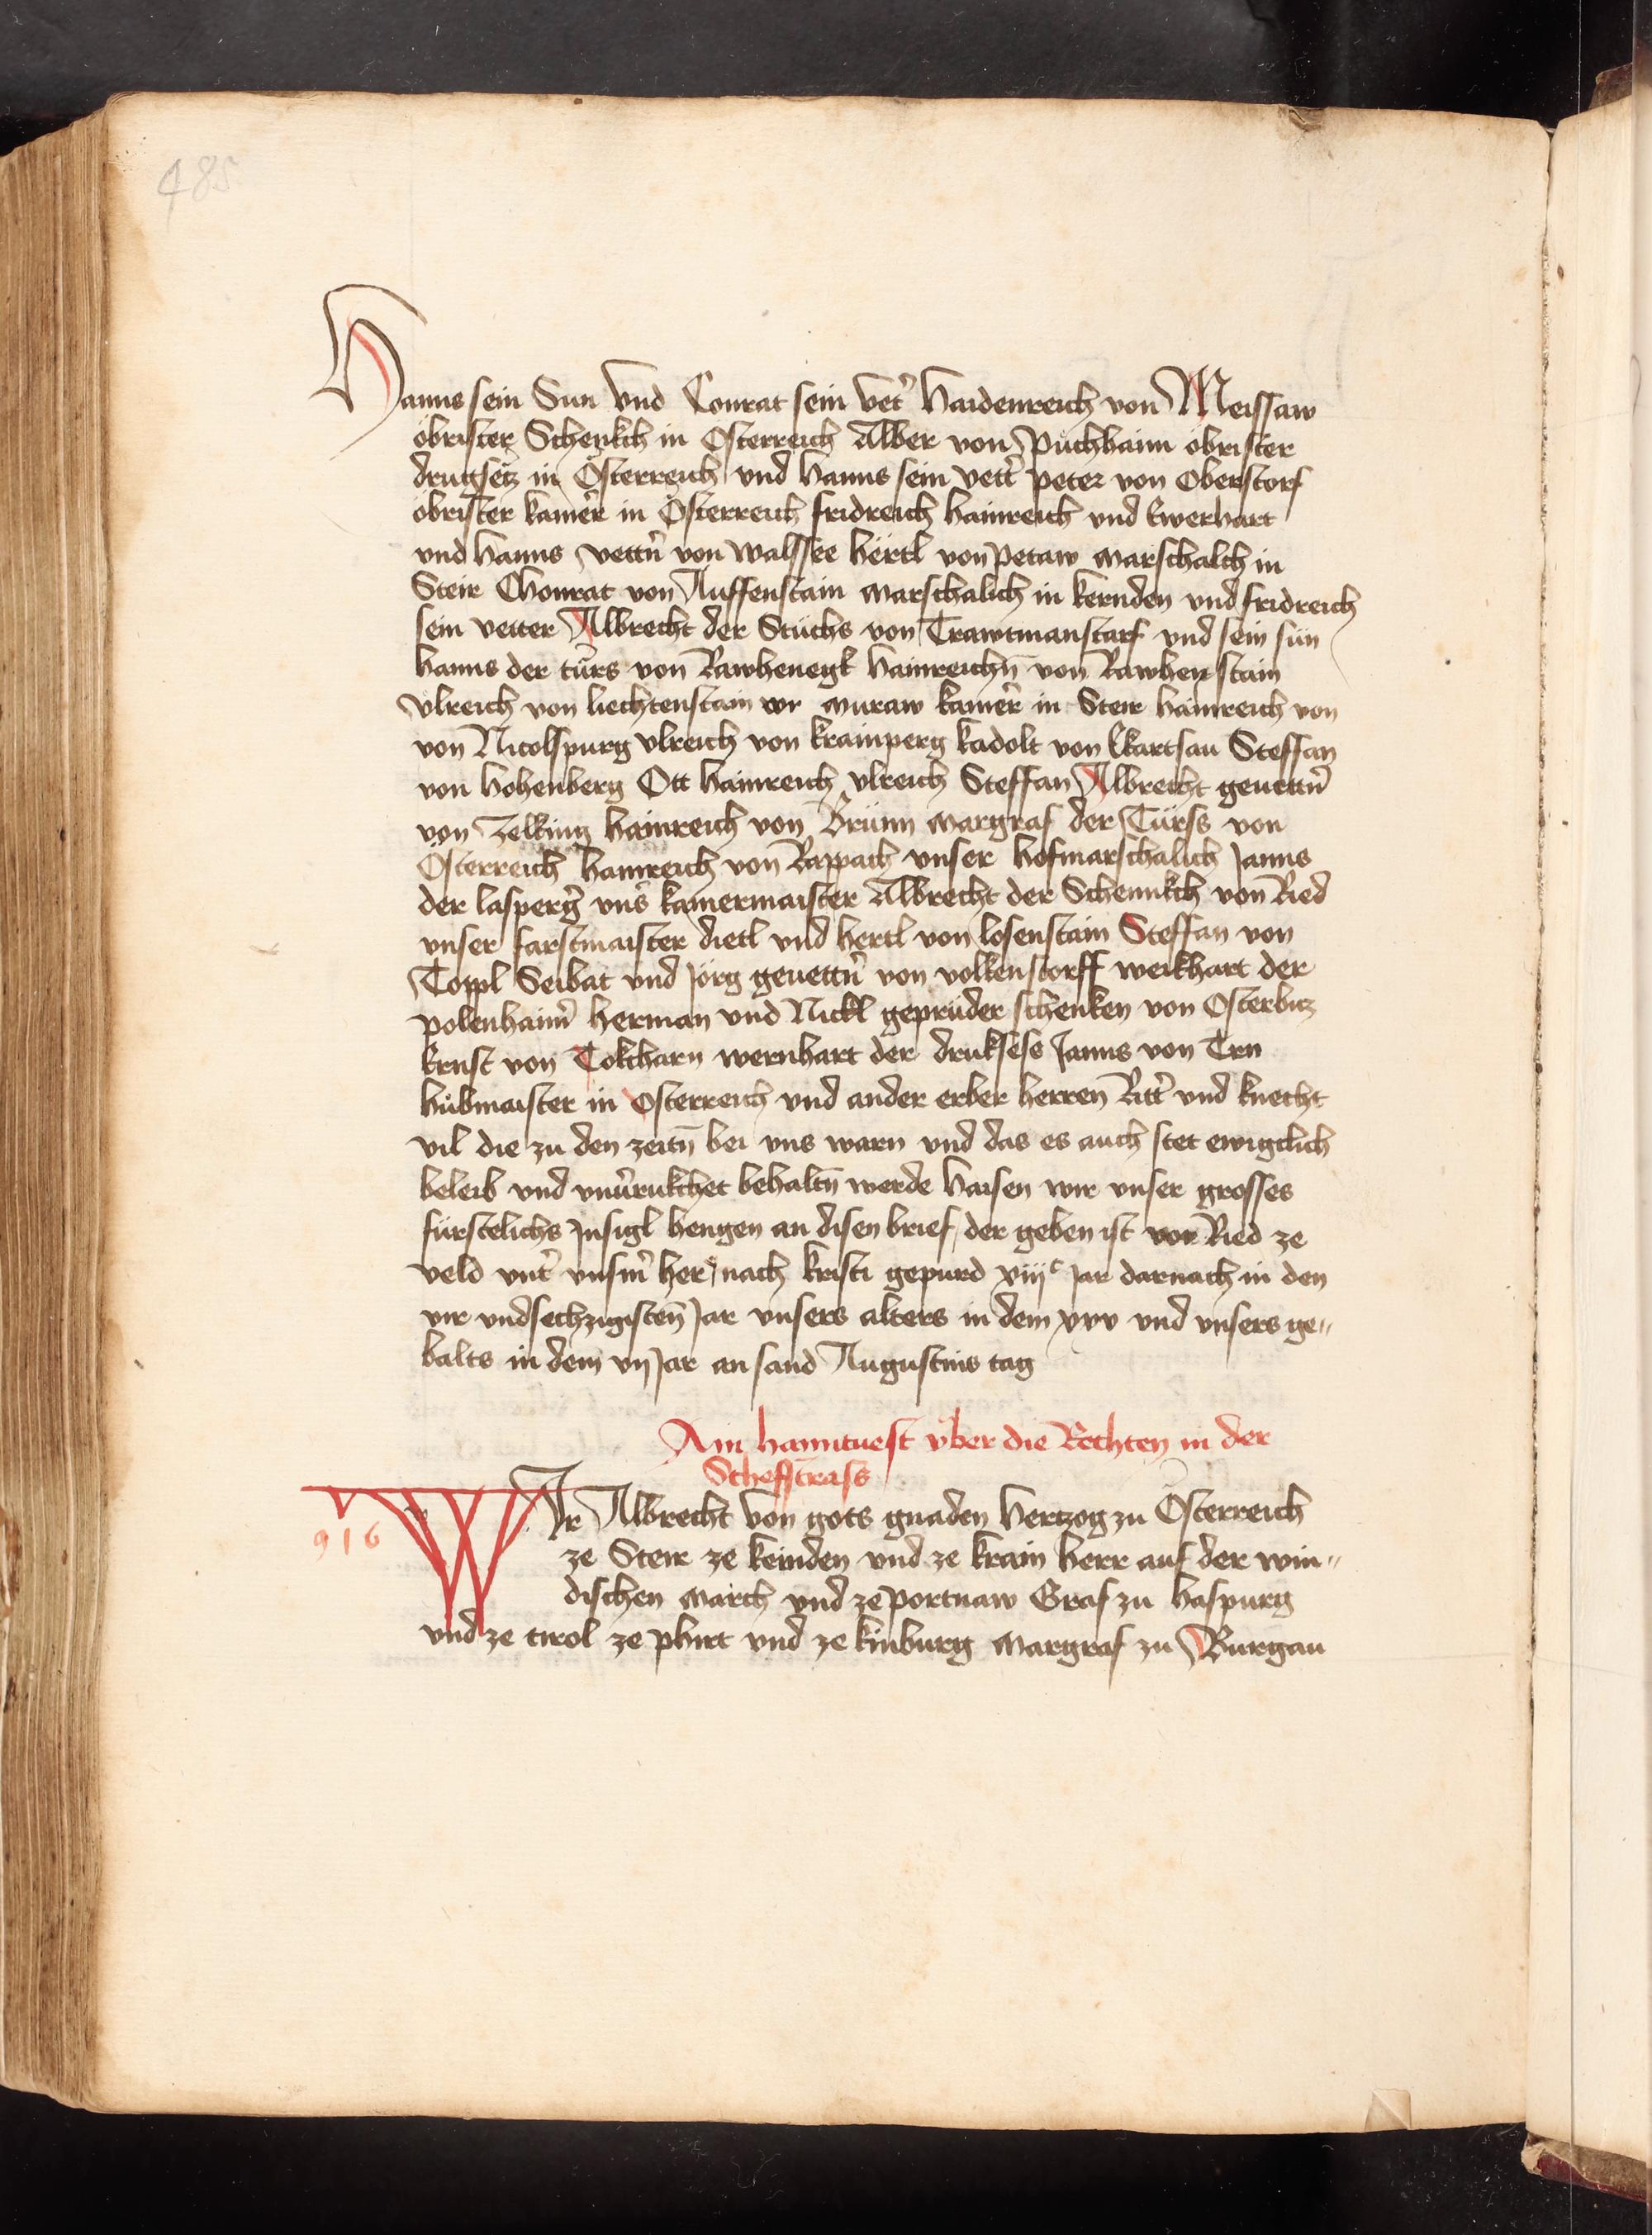 485
Hanns sein Sun vnd Conrat sein vet̉ Haidenreich von Meissaw
öbrister Schenkch in Osterreich Alber von Püchhaim öbrister
drugsetz in Österreich vnd Hanns sein vett̉ peter von Oberstorf
öbrister kamer̉ in Österreich fridreich hainreich vnd Ewerhart
vnd hanns vettn̉ von walssee hërtl von petaw marschalch in
Steir Chonrat von Auffenstain marschalich in kernden vnd fridreich
sein vetter Albrecht der Stüchs von Trawtmanstarf vnd sein sün
hanns der türs von Rawhenegk hainreichn̄ von Rawhenstain
vlreich von liechtenstain vor muraw kamer̉ in Steir hainreich von
von Nicolspurg vlreich von krainperg kadolt von Ekartsau Steffan
von hohenberg Ott hainreich vlreich Steffan Albrecht geuettn̉
von Zelking hainreich von Brünn margraf der Türss von
Österreich hainreich von Rappach vnser hofmarschalich Janns
der lasperg̉ vns̉ kamermaister Albrecht der Schennkch von Ried
vnser farstmaister dietl vnd hertl von losenstain Steffan von
Toppl Seibat vnd Jörg geuettn̉ von volkenstorff weikhart der
polenhaim̉ herman vnd Nickl geprüder schenken von Osterbitz
Ernst von Tokcharn wernhart der druksess Janns von Trn
hübmaister in Osterreich vnd ander erber herren Ritt̉ vnd knecht
vil die zu den zeitn̄ bei vns warn vnd das es auch stet ewigclich
beleib vnd vnủrukchet behaltn̄ werde haisen wir vnser grosses
fürstelichs Jnsigl hengen an disen brief der geben ist vor Ried ze
veld vnt̉ vnsm̉ her nach kristi gepurd xiijᶜ Jar darnach in den
vir vndsechzigisten̄ Jar vnsers alters in dem xxv vnd vnsers ge„
balts in dem vij Jar an sand Augustins tag
Ain hanntuest vber die Rechten in der
Scheffstrass
916
WIr Albrecht von gots gnaden hertzog zu Österreich
ze Steir ze kernden vnd ze krain herr auf der win„
dischen march vnd ze portnaw Graf zu haspurg
vnd ze tirol ze phirt vnd ze kinburg margraf zu Burgau